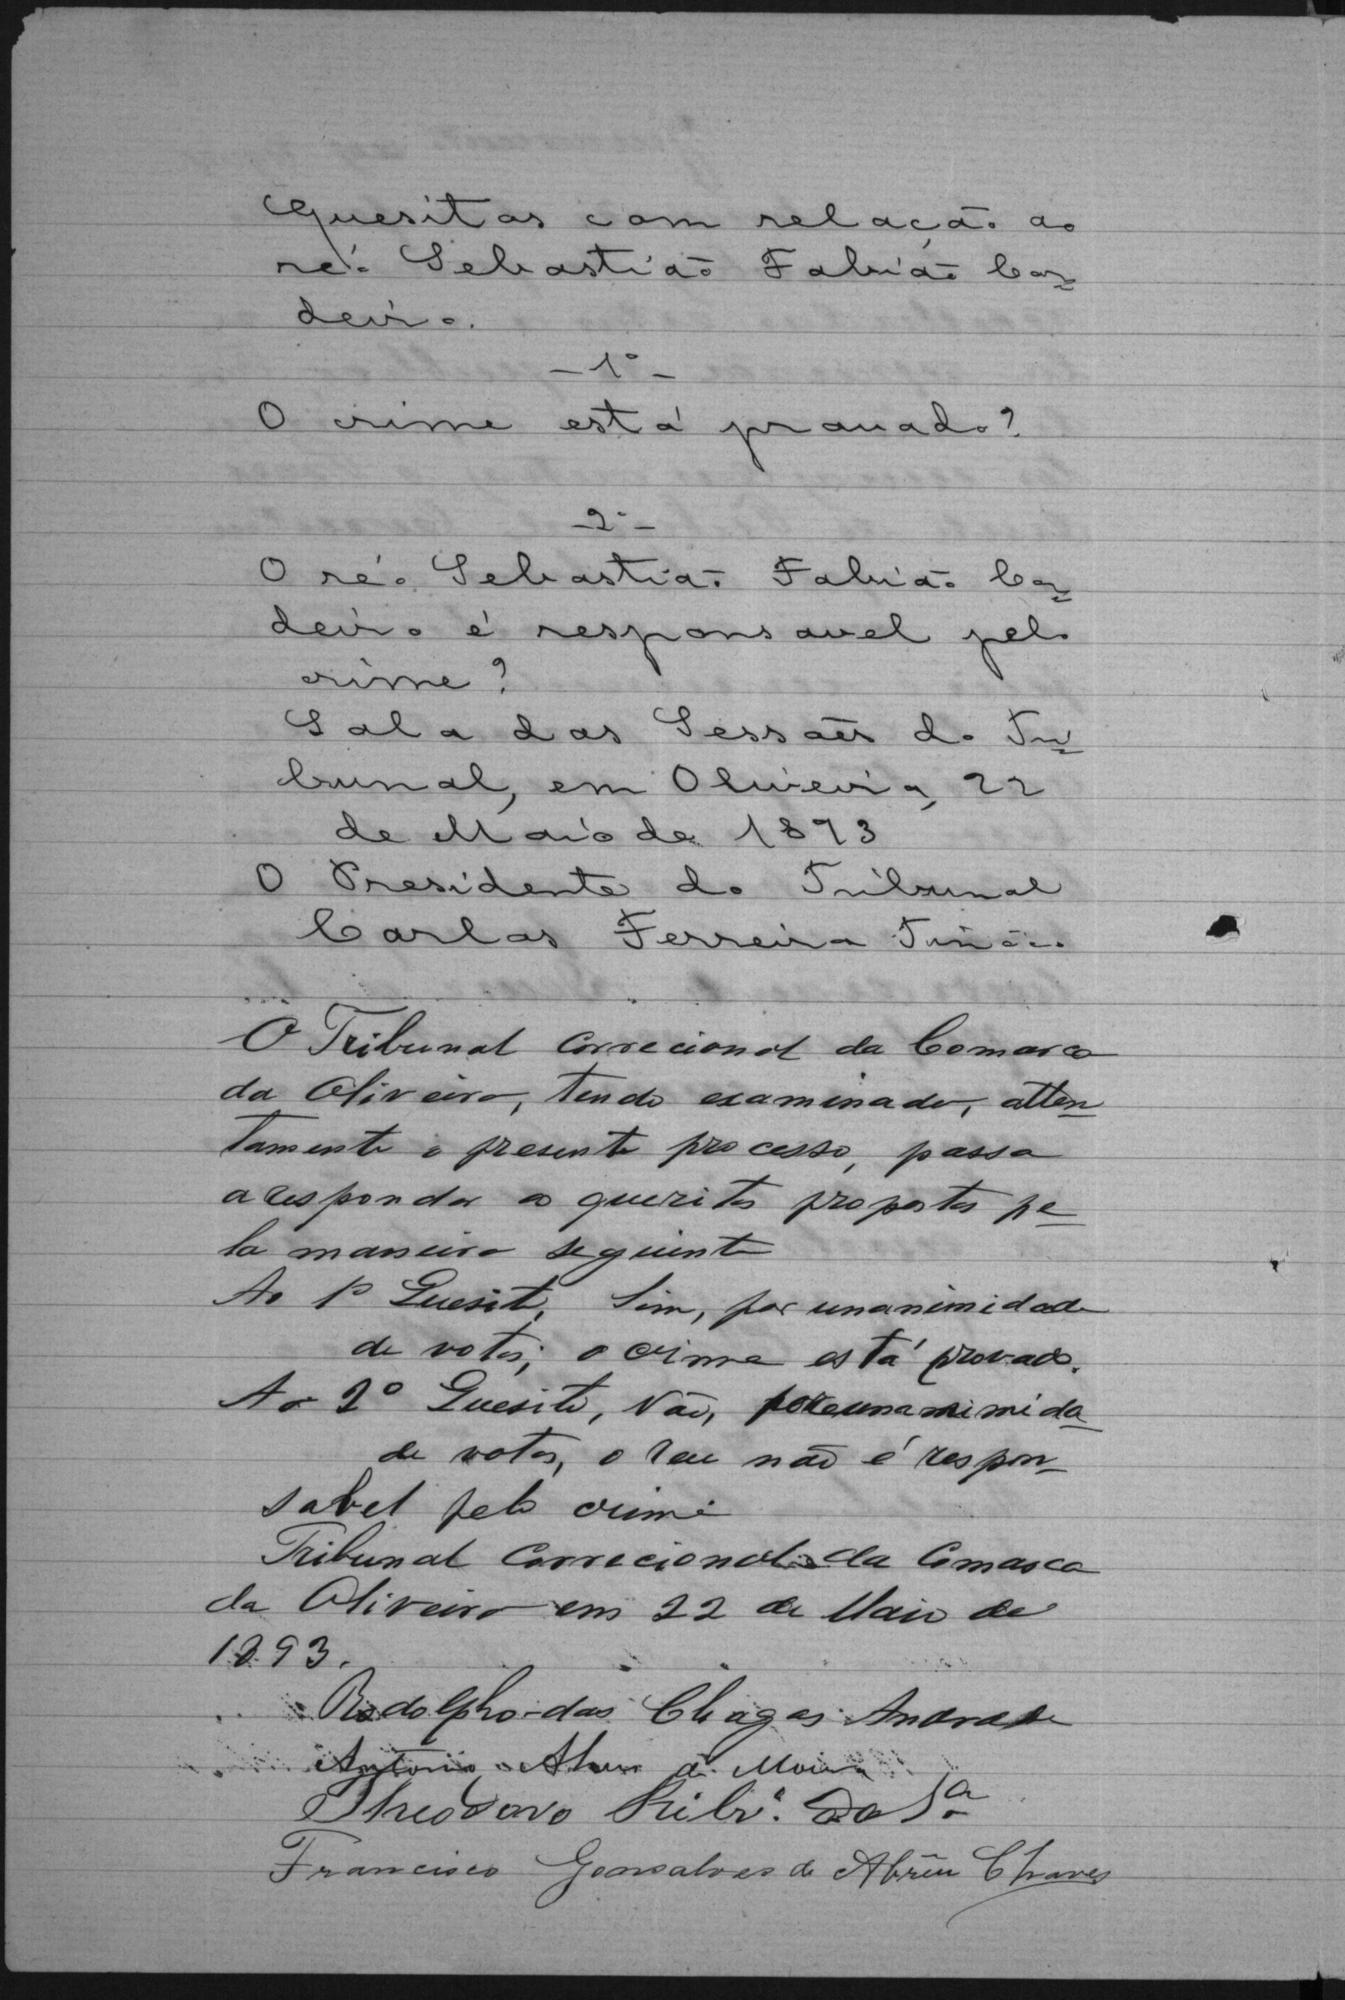 Quesitos com relação ao
réo Sebastião Fabião Cor=
deiro.
— 1º —
O crime está provado?
— 2º —
O réo Sebastião Fabião Cor=
deiro é responsavel pelo
crime?
Sala das Sessões do Tri=
bunal, em Oliveira, 22
de Maio de 1893
O Presidente do Tribunal
Carlos Ferreira Tinôco.
O Tribunal Correcional da Comarca
da Oliveira, tendo examinado, atten=
tamente o presente processo, passa
a responder os quesitos propostos pe=
la maneira seguinte
Ao 1º Quesito, Sim, por unanimidade
de votos; o crime está provado.
Ao 2º Quesito, Não, por unanimida=
de votos, o reu não é respon=
sabel pelo crime
Tribunal Correcional da Comarca
da Oliveira em 22 de Maio de
1893.
Rodolpho das Chagas Andrade
Antonio Alves de
Theodoro Ribrº da Sª
Francisco Gonsalves de Abrêu Chaves